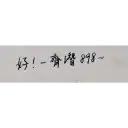 好！一齊潛898~